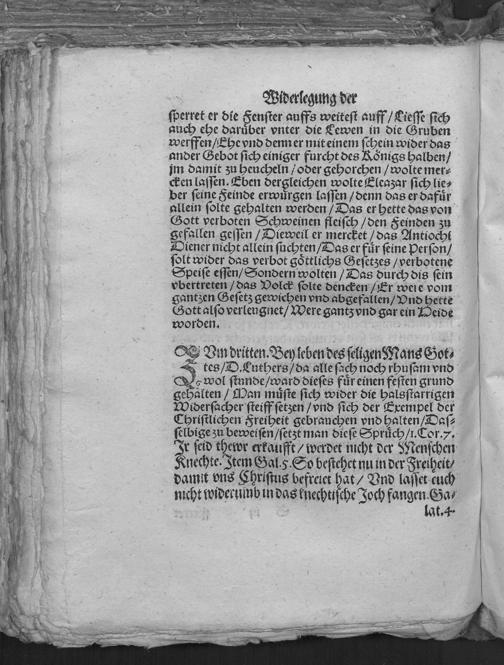 Widerlegung der
sperret er die Fenster auffs weitest auff/Liesse sich
auch ehe darüber vnter die Lewen in die Gruben
werffen/Ehe vnd denn er mit einem schein wider das
ander Gebot sich einiger furcht des Königs halben/
jm damit zu heucheln/oder gehorchen/wolte mer-
cken lassen. Eben dergleichen wolte Eleazar sich lie-
ber seine Feinde erwürgen lassen/denn das er dafür
allein solte gehalten werden/Das er hette das von
Gott verboten Schweinen fleisch/den Feinden zu
gefallen gessen/Dieweil er mercket/das Antiochi
Diener nicht allein suchten/Das er für seine Person/
solt wider das verbot göttlichs Gesetzes/verbotene
Speise essen/Sondern wolten/Das durch dis sein
vbertreten/das Volck solte dencken/Er were vom
gantzen Gesetz gewichen vnd abgefallen/Vnd hette
Gott also verleugnet/Were gantz vnd gar ein Heide
worden.
ZVm dritten. Bey leben des seligen Mans Got-
tes/D. Luthers/da alle sach noch rhusam vnd
wol stunde/ward dieses für einen festen grund
gehalten/Man müste sich wider die halsstarrigen
Widersacher steiff setzen/vnd sich der Exempel der
Christlichen Freiheit gebrauchen vnd halten/Das-
selbige zu beweisen/setzt man diese Sprüch/1. Cor. 7.
Jr seid thewr erkaufft/werdet nicht der Menschen
Knechte. Item Gal. 5. So bestehet nu in der Freiheit/
damit vns Christus befreiet hat/Vnd lasset euch
nicht widerumb in das knechtische Joch fangen. Ga-
lat. 4.